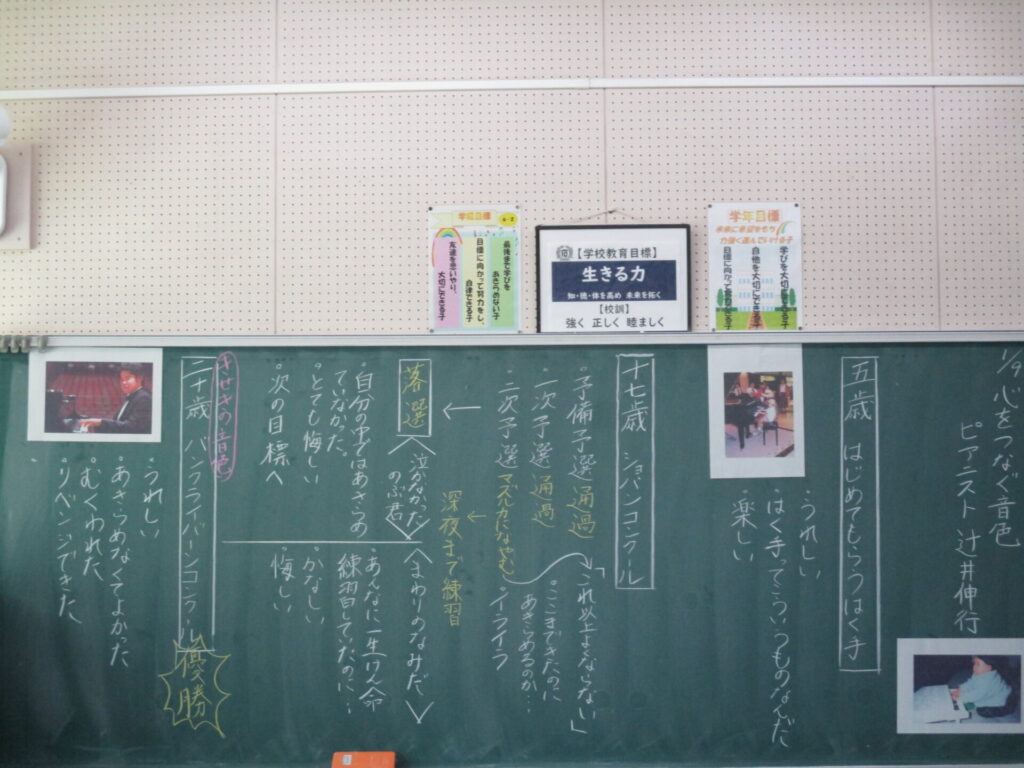 学級目標
6-2
最後まで学びを
あきらめない子
目標に向かって努力をし、
自律できる子
友達を思いやり、
大切にできる子
【学校教育目標】
生きる力
知・徳・体を高め 未来を拓く
【校訓】
強く 正しく 睦ましく
学年目標
未来に希望をもち
力強く進んでいける子
学びを大切にできる子
自他を大切にできる子
目標に向かって
1/9 心をつなぐ音色
ピアニスト 辻井伸行
五歳 はじめてもらうはく手
・うれしい
・はく手ってこういうものなんだ
・楽しい
十七歳 ショパンコンクール
・予備予選通過
・一次予選通過
・二次予選 マズルカになやむ
「これ以上よくならない」
・ここまできたのに
あきらめるのか…
・イライラ
深夜まで練習
落選
泣かなかった
のぶ君
・自分の中ではあきらめ
ていなかった。
・とても悔しい
・次の目標へ
まわりのなみだ
・あんなに一生けん命
練習していたのに…
・かなしい
・悔しい
きせきの音色
二十歳 バンクライバーンコンクール
優勝
・うれしい
・あきらめなくてよかった
・むくわれた
・リベンジできた